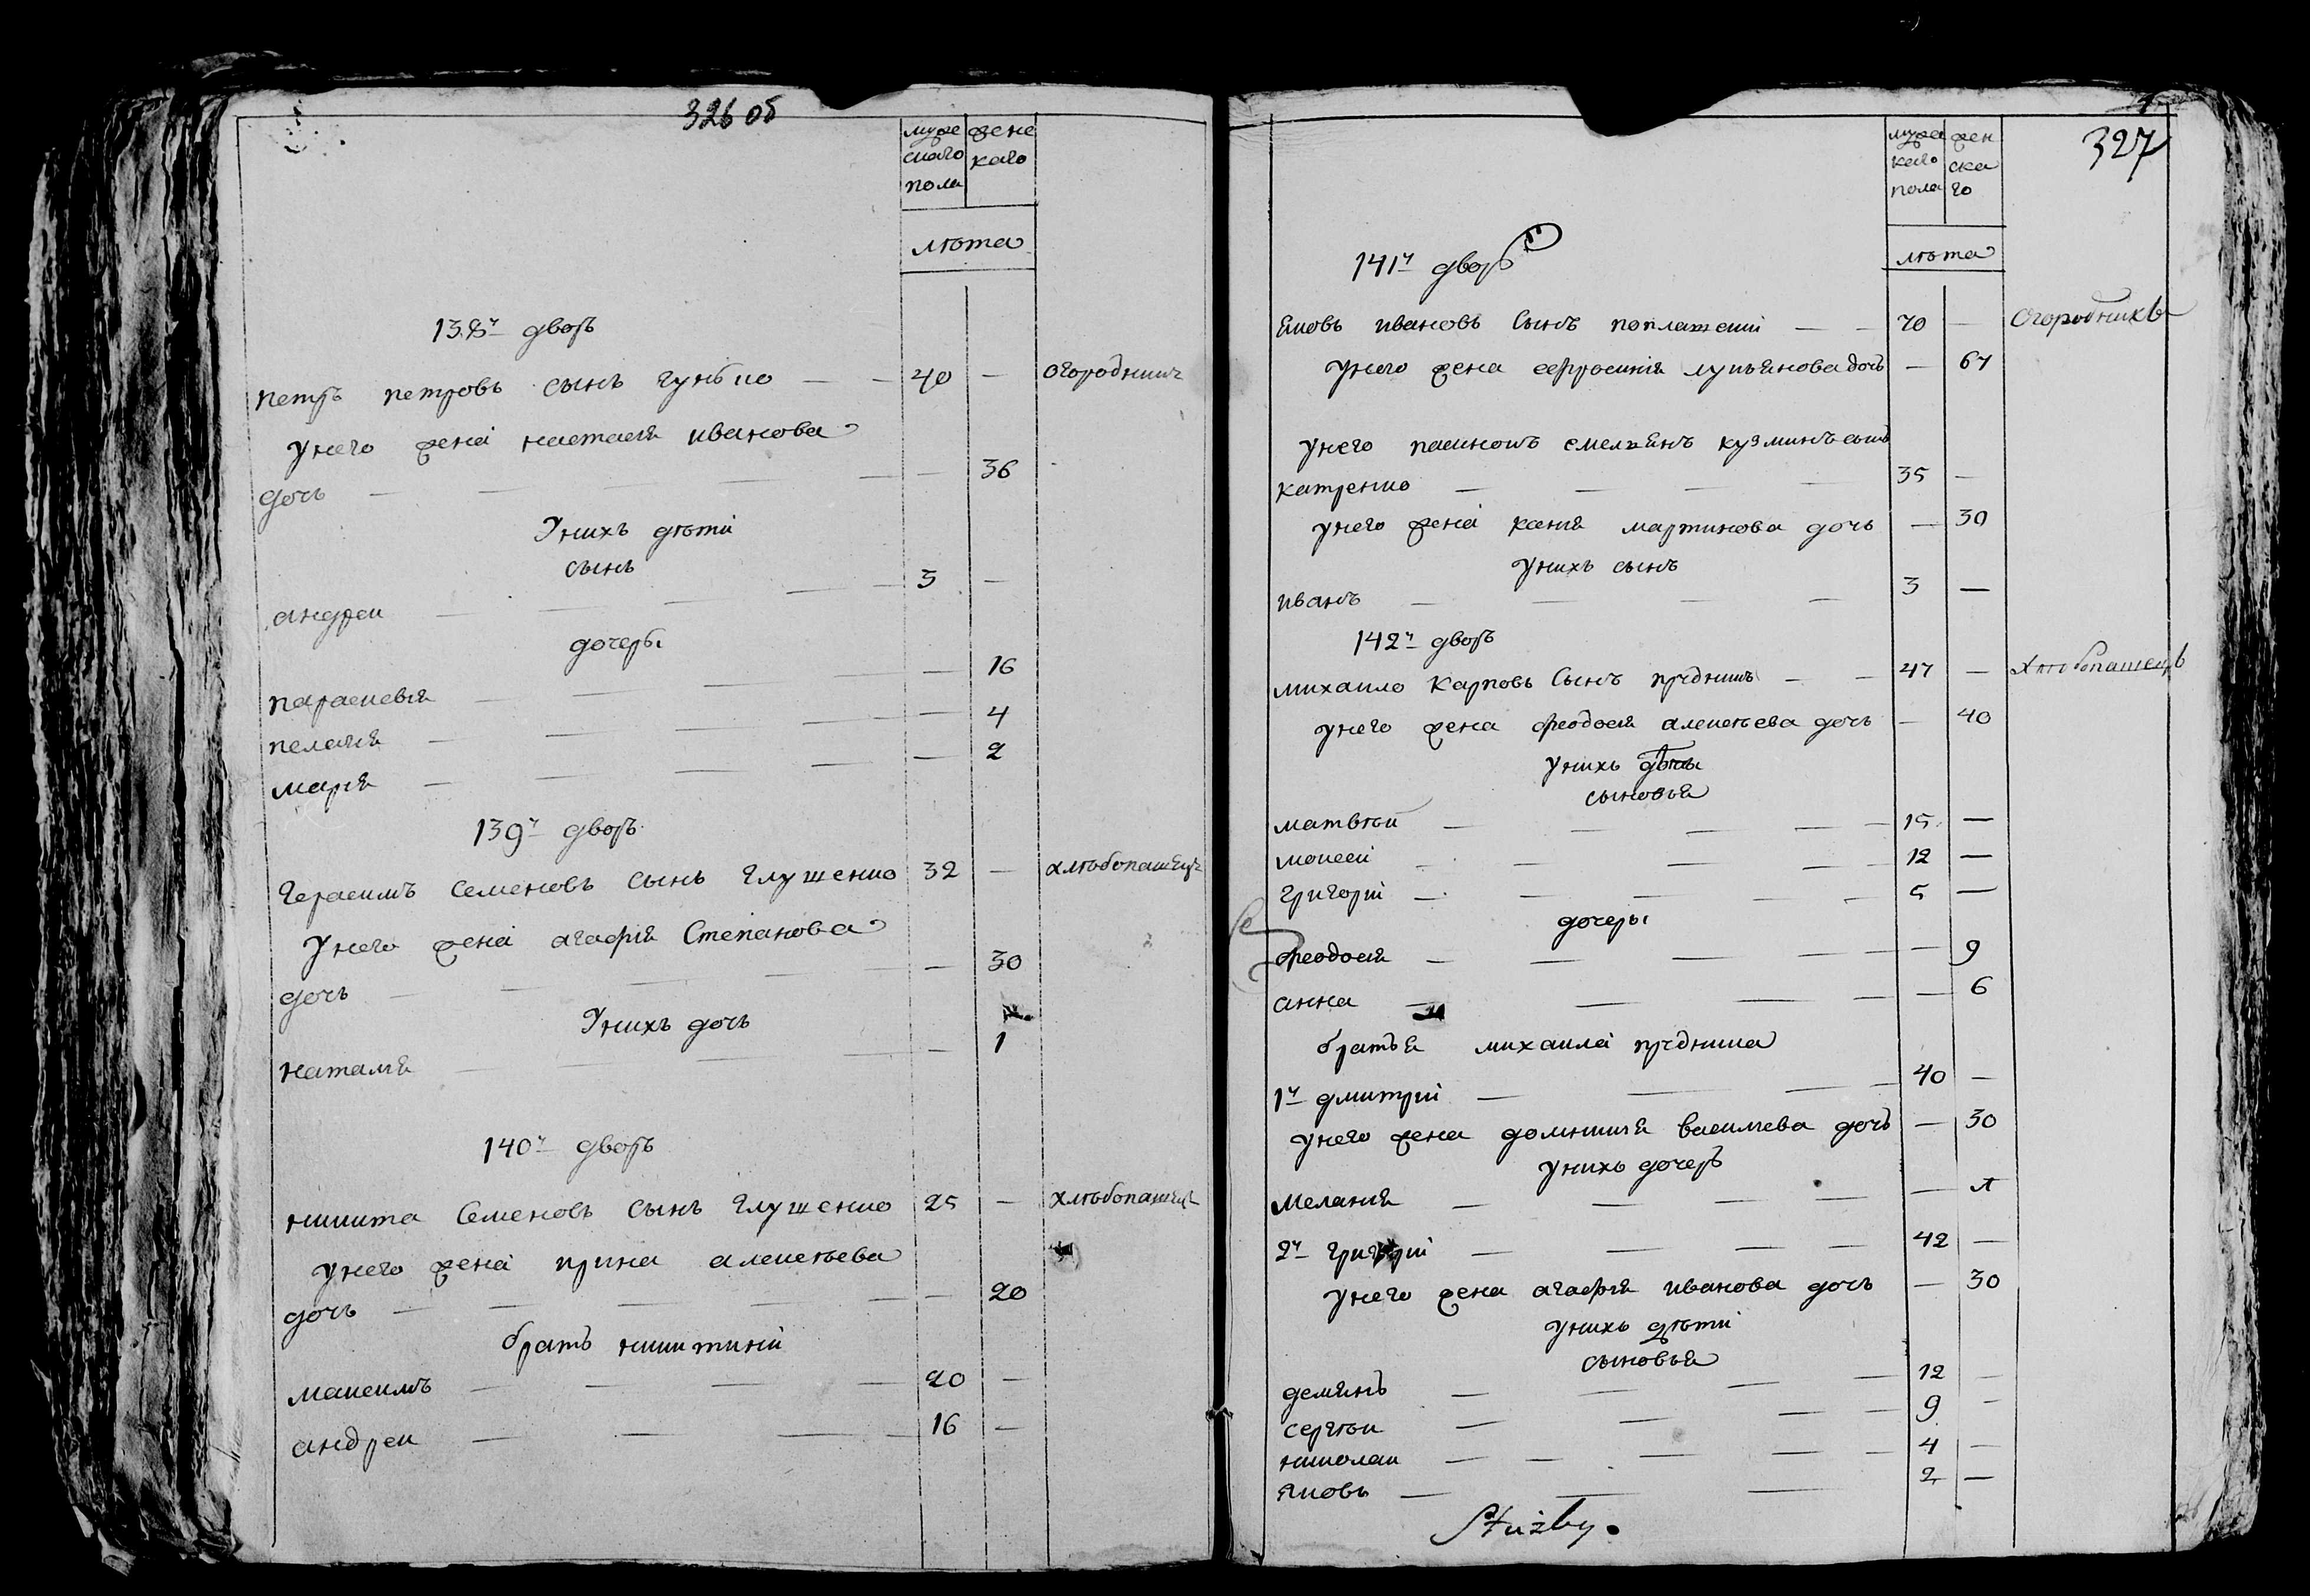 326 об
мужеска́го пола
женскаго
лѣта
138й дворъ
петръ петровъ сынъ гунько 40 — огородникъ
унего жена настасия иванова
дочь — 36
Унихъ дѣти
сынъ
андреи 3 —
дочеры
параскевия — 16
пелагия — 4
мария — 2
139й дворъ
герасимъ семеновъ сынъ глущенко 32 — хлѣбопашецъ
унего жена агафия Степанова
дочь — 30
Унихъ дочь
наталия — 1
140й дворъ
никита Семеновъ сынъ глущенко 25 — хлѣбопашецъ
унего жена ирина алексѣева
дочь — 20
братъ никитинъ
максимъ 20 —
андреи 16 —
327
мужескаго пола
женскаго
лѣта
141й дворъ
яковъ ивановъ Сынъ 70 — Огородникъ
унего жена ефросиния лукьянова дочь — 67
унего пасинокъ емельянъ кузминъ сынъ
катренко 35 —
унего жена ксения мартинова дочь — 30
унихъ сынъ
иванъ 3 —
142й дворъ
михаило Карповъ Сынъ прудникъ 47 — Хлѣбопашецъ
унего жена феодосия алексѣева дочь — 40
унихъ дѣти
сыновья
матвѣи 15 —
моисеи 12 —
григории 5 —
дочеры
феодосия — 9
анна — 6
братья михаила прудника
1й дмитрии 40 —
унего жена домникия василиева дочь — 30
унихъ дочеръ
мелания —
2й григории 42 —
унего жена агафия иванова дочь — 30
унихъ дѣти
сыновья
демянъ 12 —
сергѣи 9 —
николаи 4 —
яковъ 2 —
Służby.